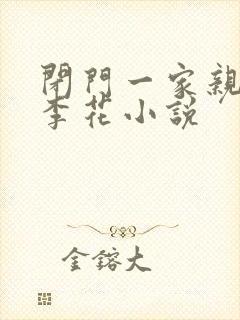 閉門一家親
李花小說
金鎔大